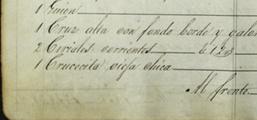 1 Guion
1 Cruz alta con fondo borde y galon
2 Ciriales corrientes á 12
1 Crucecita vieja chica
Al frente